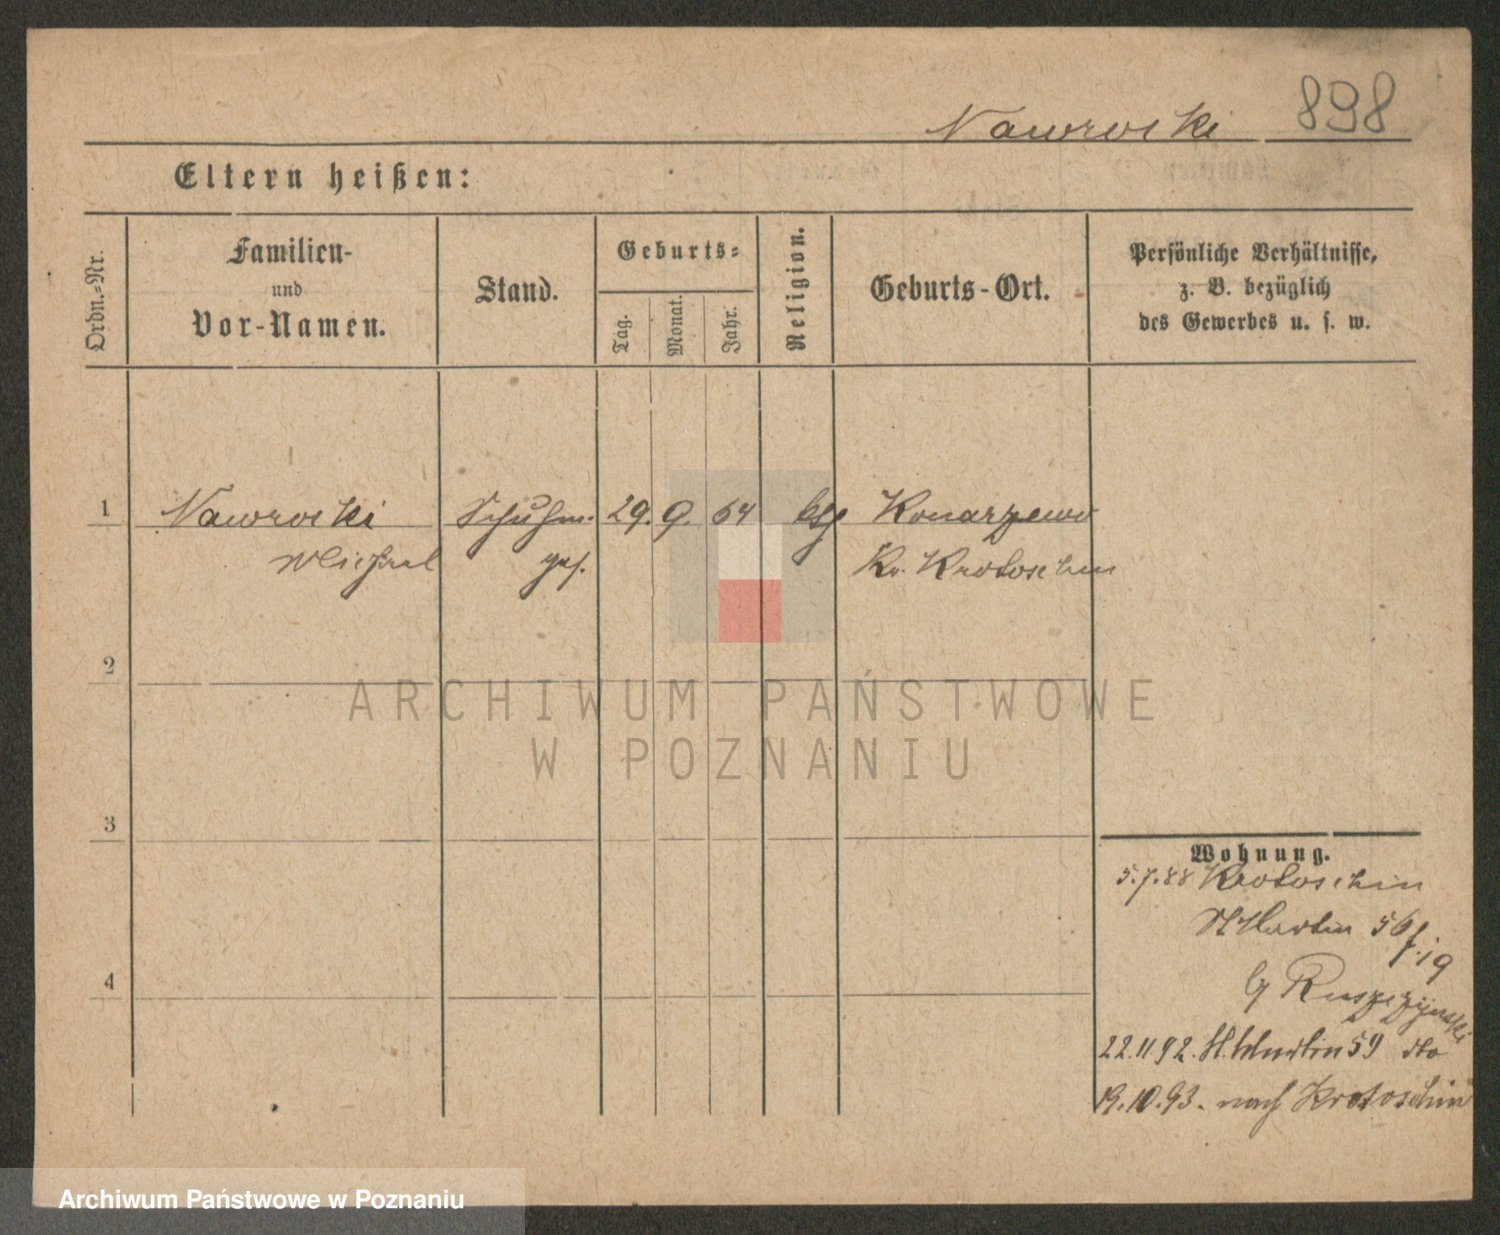 Nawrocki 898
Eltern heißen:
Ordn.-Nr.
Familien-
und
Vor-Namen.
Stand.
Geburts-
Tag.
Monat.
Jahr.
Religion.
Geburts-Ort.
Persönliche Verhältnisse,
z. B. bezüglich
des Gewerbes u. s. w.
1 Nawrocki Schuhm. 29. 9. 64 ktℎ Konarzewo
Michael ges. Kr. Krotoschin
2
ARCHIWUM PAŃSTWOWE
W POZNANIU
3
Wohnung.
5.7.88 Krotoschin
St Martin 56
b/ Ruszczynski
4
22.11.92. St. Martin 59 dto
19.10.93. nach Krotoschin
Archiwum Państwowe w Poznaniu